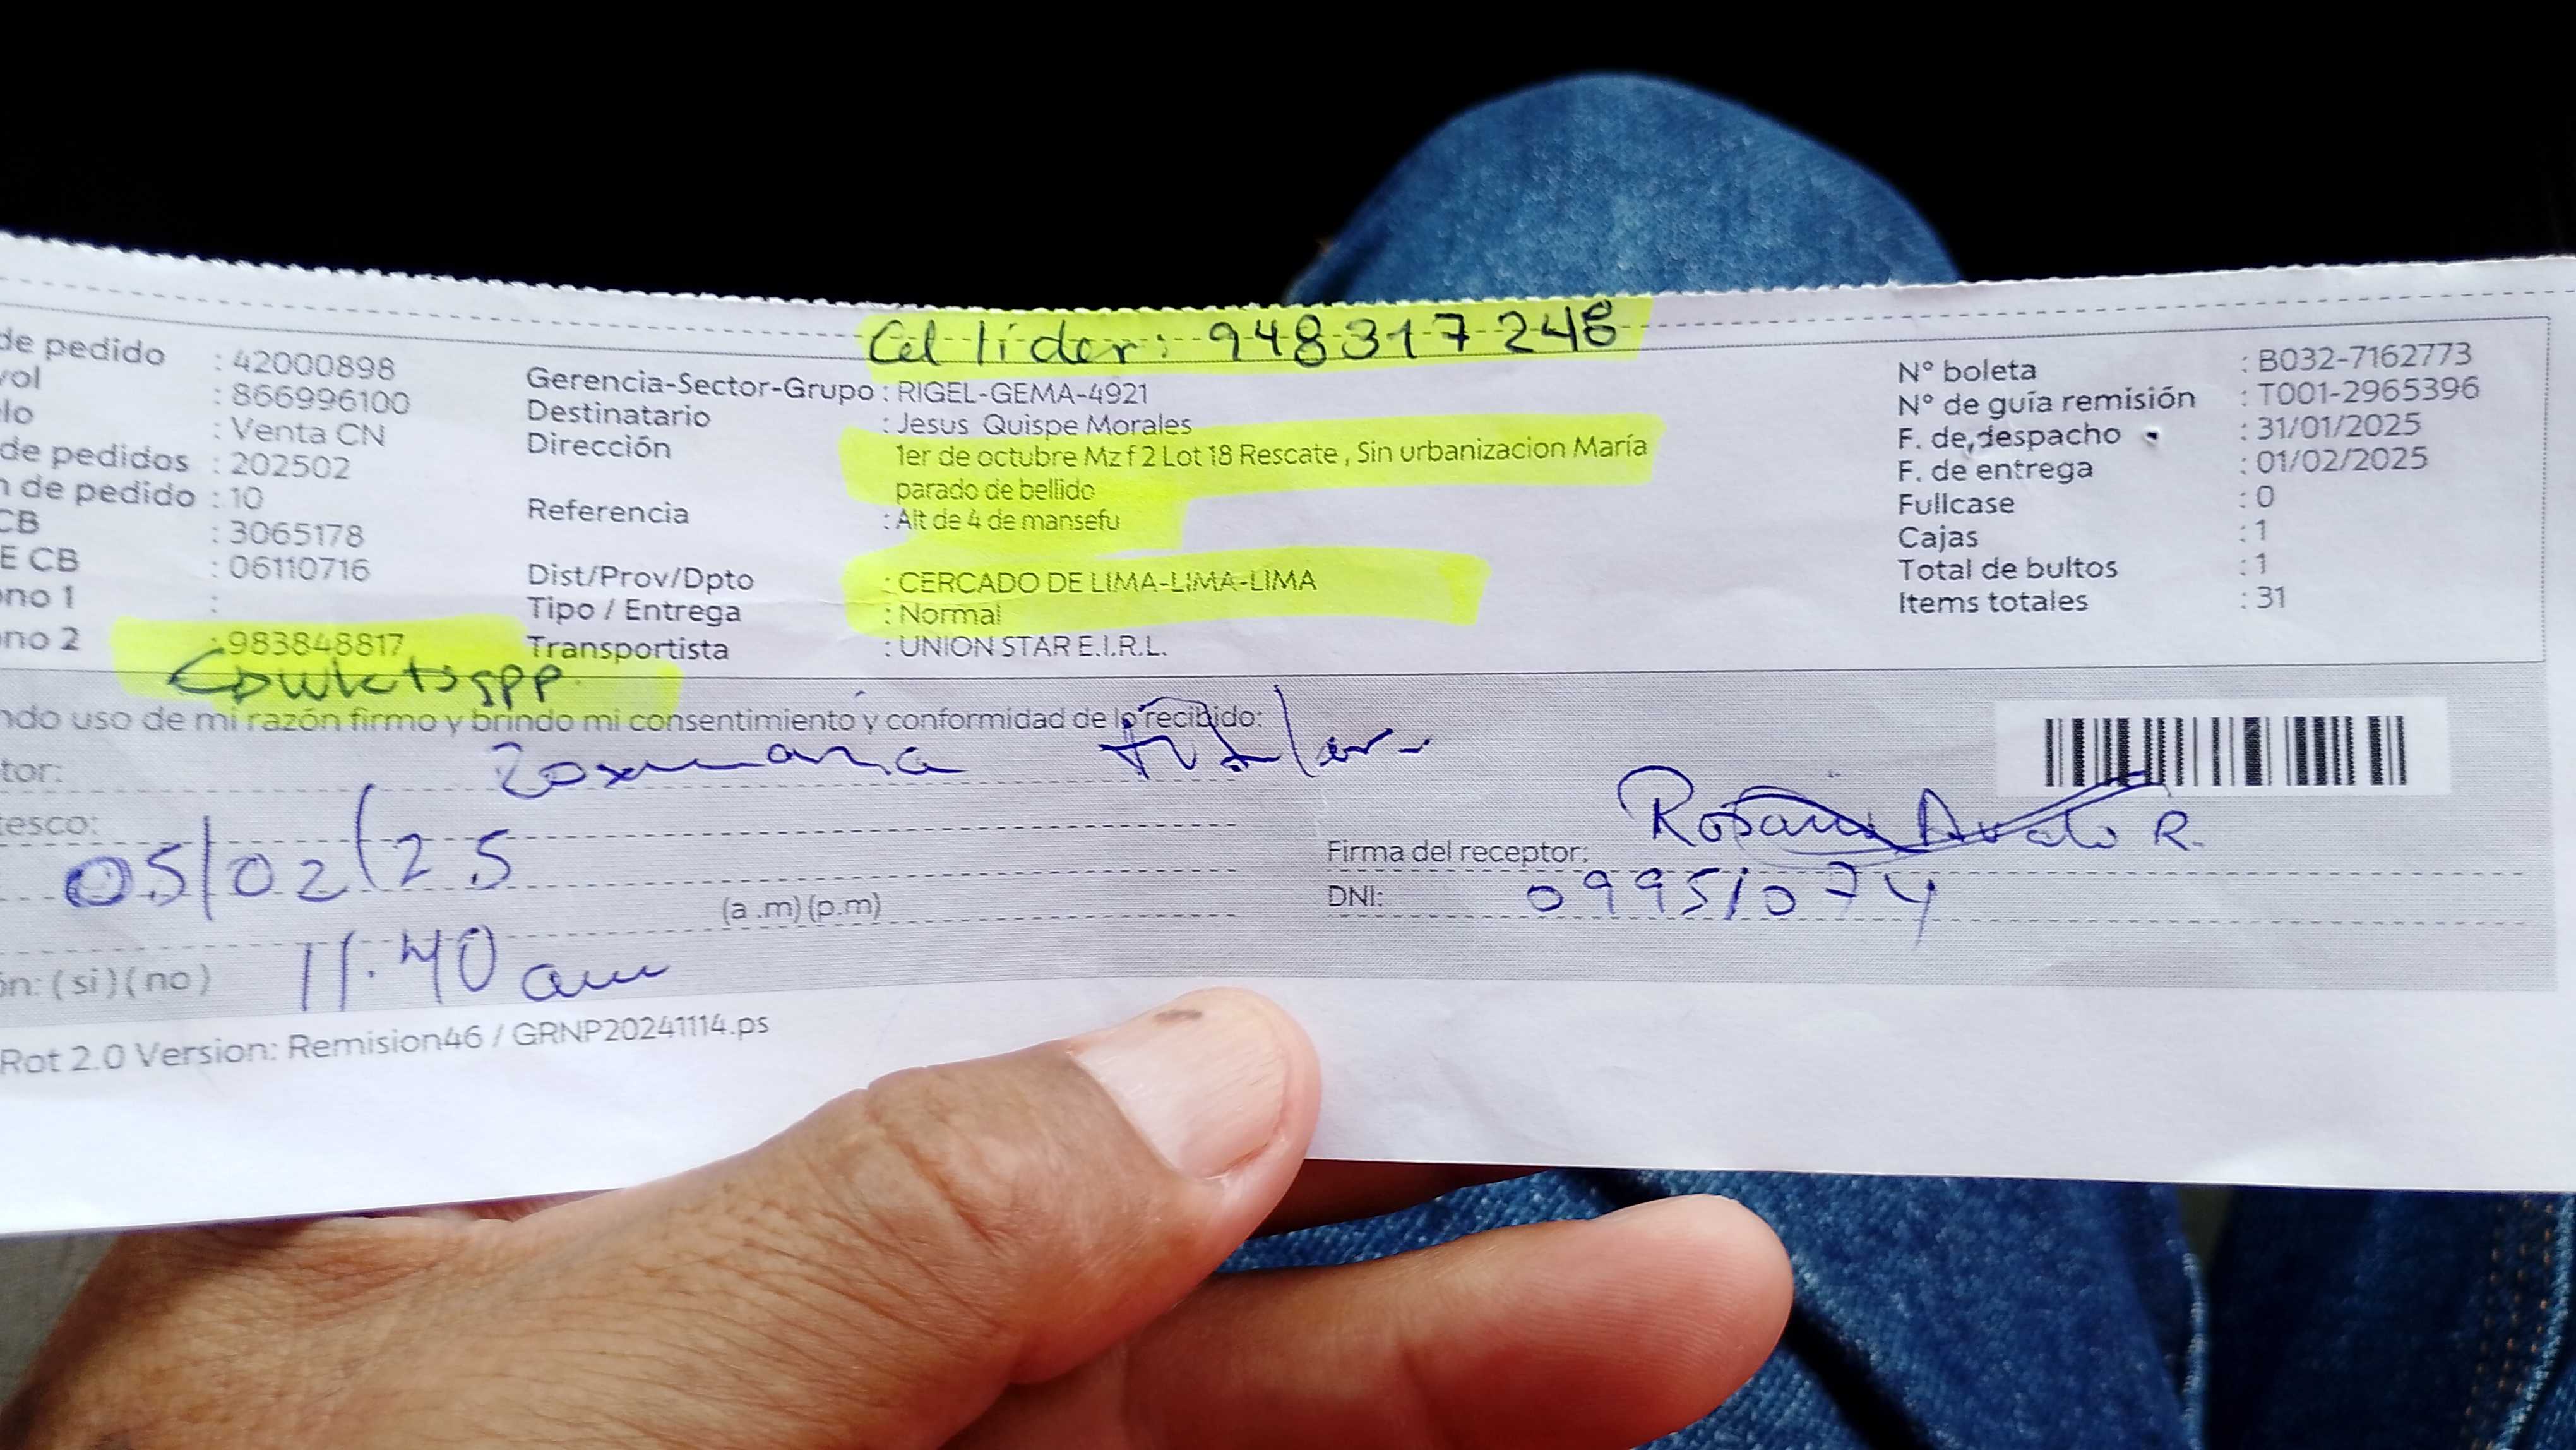 Cel líder: 948317248
de pedido : 42000898
vol : 866996100
lo : Venta CN
de pedidos : 202502
n de pedido : 10
CB : 3065178
E CB : 06110716
ono 1 :
ono 2 : 983848817
Gerencia-Sector-Grupo : RIGEL-GEMA-4921
Destinatario : Jesus Quispe Morales
Dirección : 1er de octubre Mz f 2 Lot 18 Rescate , Sin urbanizacion María
parado de bellido
Referencia : Alt de 4 de mansefu
Dist/Prov/Dpto : CERCADO DE LIMA-LIMA-LIMA
Tipo / Entrega : Normal
Transportista : UNION STAR E.I.R.L.
N° boleta : B032-7162773
N° de guía remisión : T001-2965396
F. de despacho : 31/01/2025
F. de entrega : 01/02/2025
Fullcase : 0
Cajas : 1
Total de bultos : 1
Items totales : 31
ndo uso de mi razón firmo y brindo mi consentimiento y conformidad de lo recibido:
tor:
tesco:
05/02/25
(a .m) (p.m)
ón: ( si ) ( no )
11:40 am
Firma del receptor:
DNI: 09951074
Rot 2.0 Version: Remision46 / GRNP20241114.ps